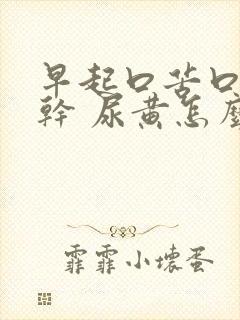 早起口苦口
幹 尿黄怎麼
霏霏小壞蛋